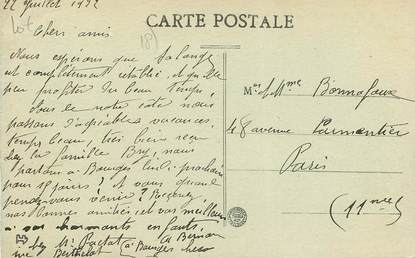 22 Juillet 1932
CARTE POSTALE
Lot
181
Chers amis.
Nous espérons que Solange
est complètement rétablie et qu'elle
peu profiter du beau temps,
de notre côté nous
passons d'agréables vacances,
temps beau, très bien reçu
chez la famille Bry, nous
partons à Bauges lundi prochain
pour 15 jours? et vous quand
pendrez vous venir? Recevez
nos bonnes amitiés et vos meilleurs
à vos charmants enfants.
chez Mr Pactat
à Bauges
Berthelot
Mr et Mme Bonnafoux
48 avenue Parmentier
Paris
(11me)